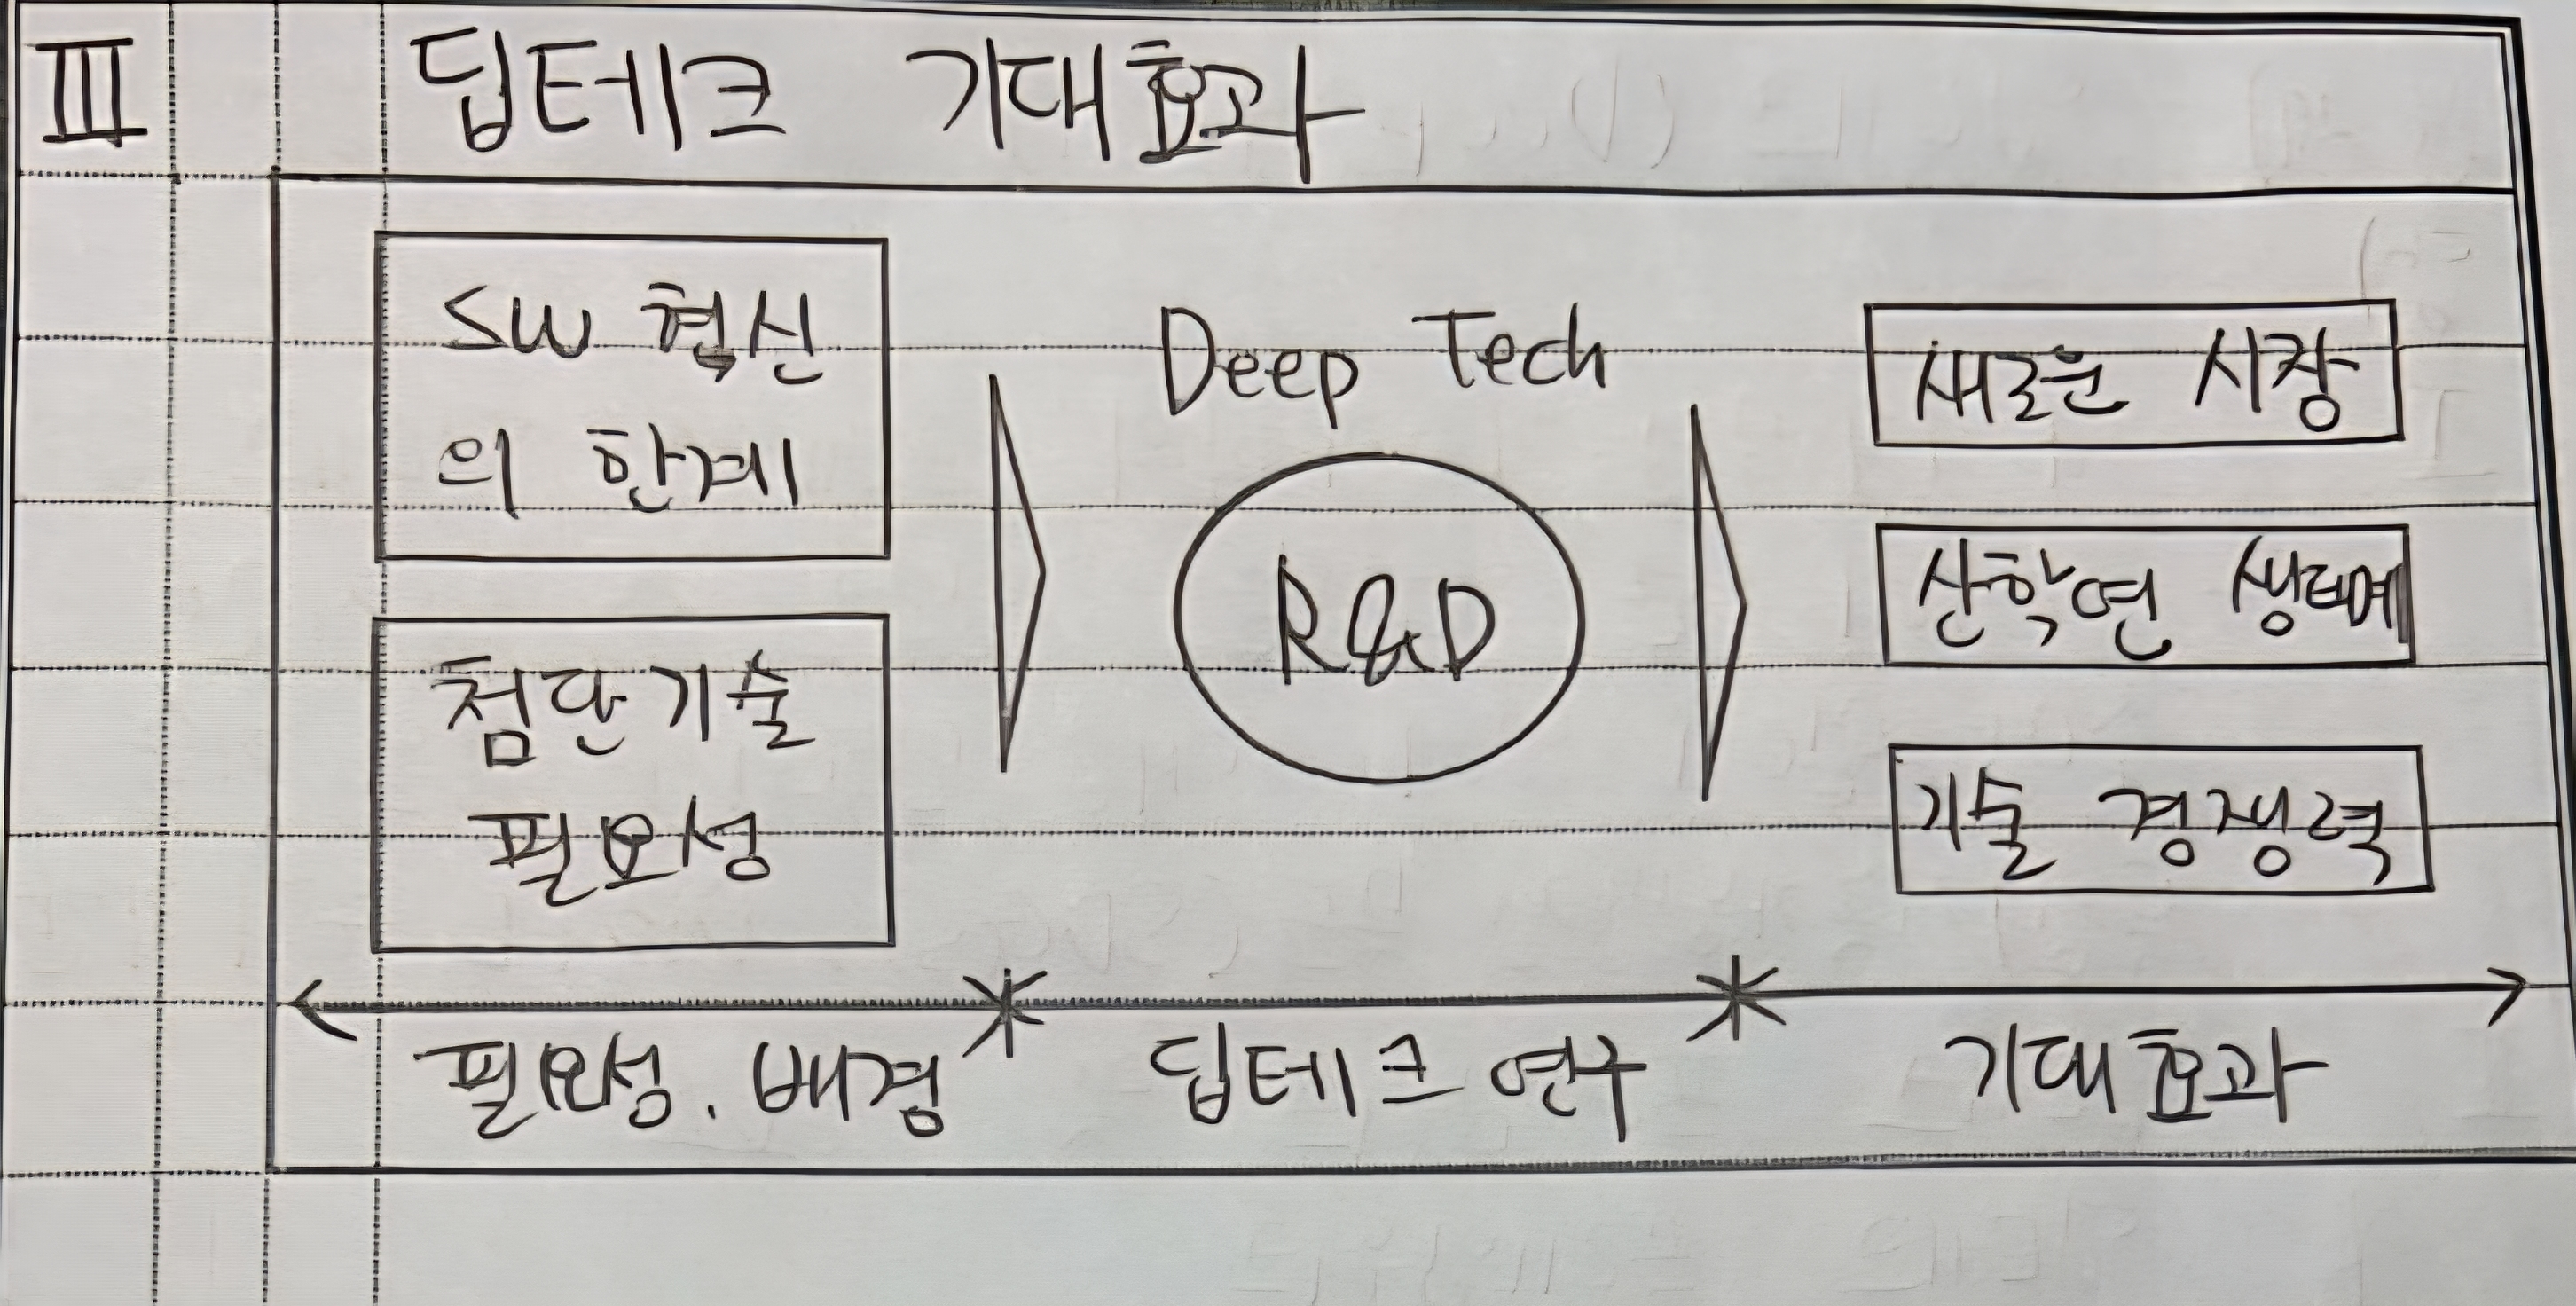 III 딥테크 기대효과
SW 혁신
의 한계
첨단기술
필요성
Deep Tech
R&D
새로운 시장
산학연 생태계
기술 경쟁력
필요성. 배경
딥테크 연구
기대효과